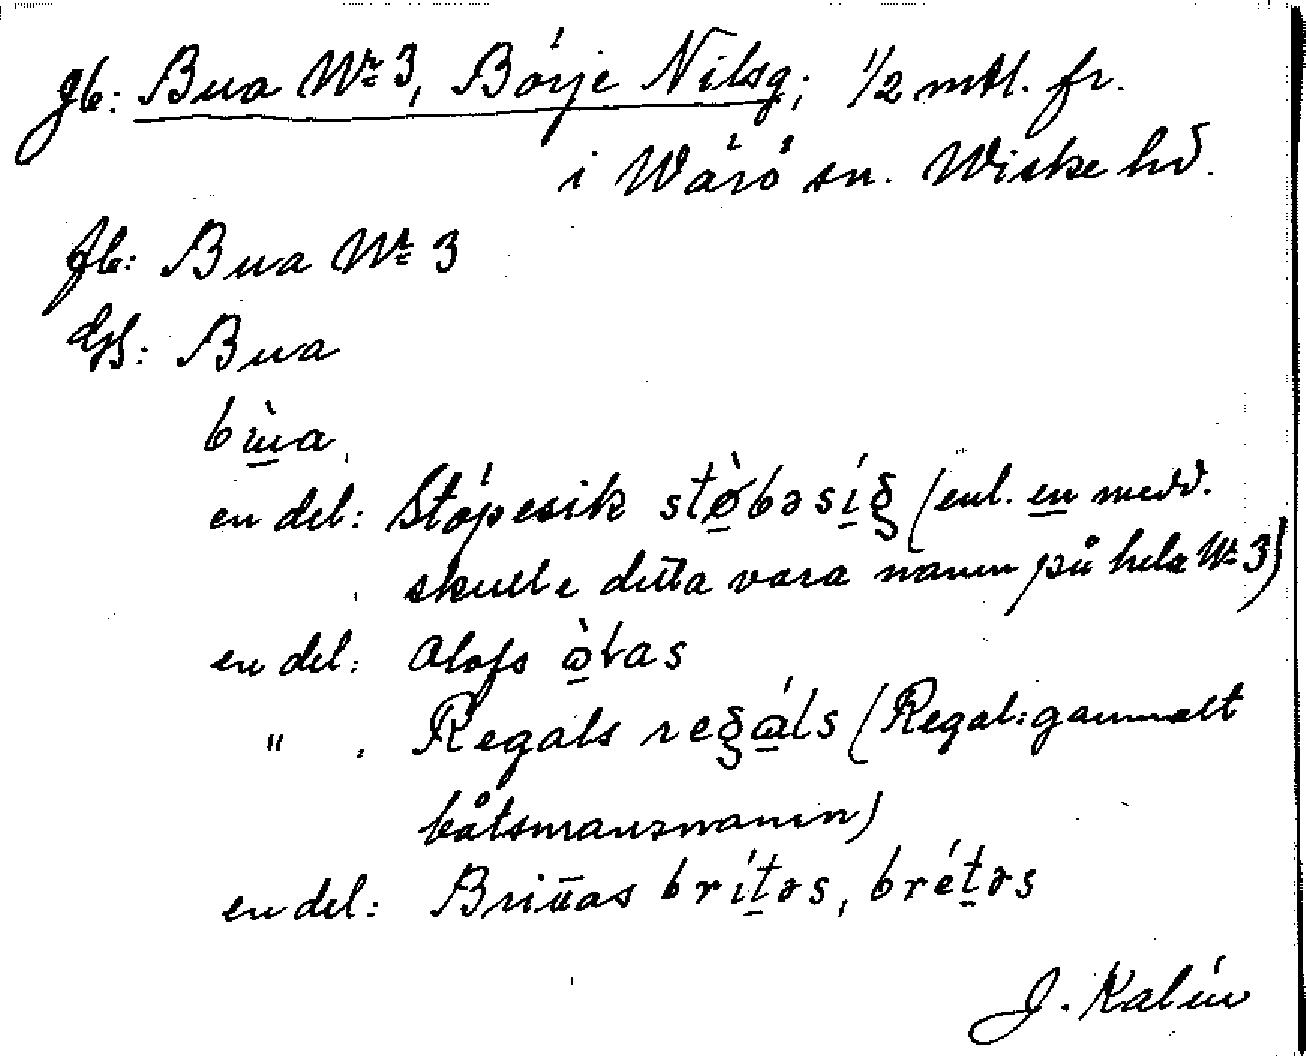 Jb: Bua Nr 3, Börje Nilsg; 1/2 mtl. fr.
i Wärö sn. Wiske hd.
Jb: Bua Nr 3
GS: Bua
bɯ̀a
en del: Stöpesik stø̀bəsíg (enl. en medd.
skulle detta vara namn på hela Nr 3)
en del: Olofs
" . Regals regɑ́ls (Regal: gammalt
båtsmansnamn)
en del: Brittas brítəs, brétəs
J. Kalén